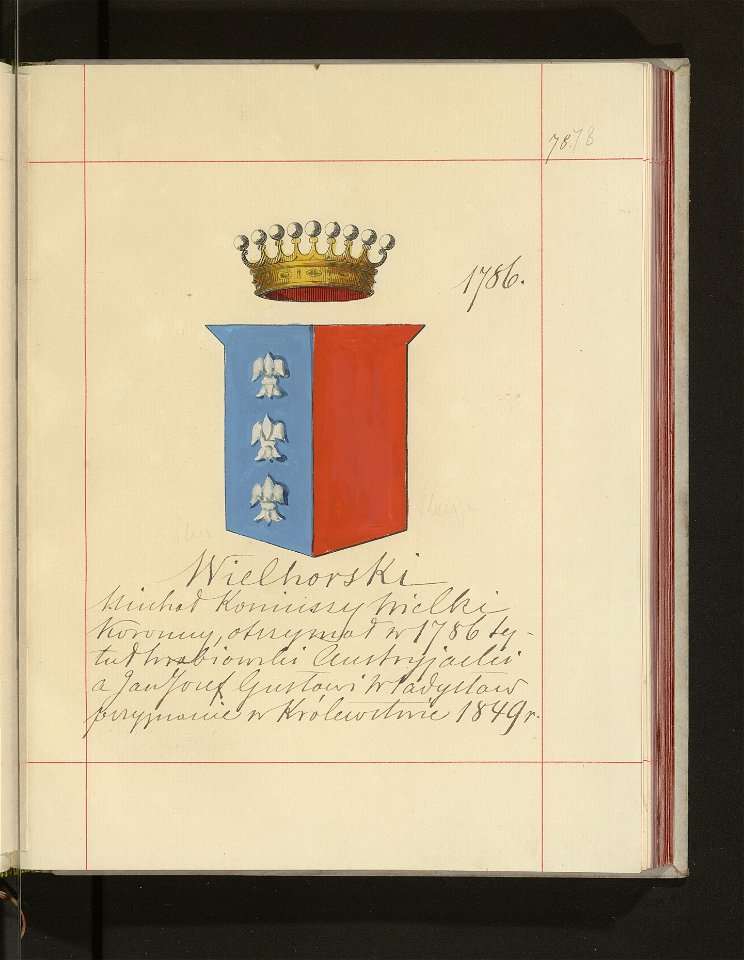 78.78
1786.
Wielhorski
Michał Koniuszy Wielki
Koronny, otrzymał w 1786 ty-
tuł hrabiowski Austryjacki
a Jan Józef Gustaw i Władysław
przyznanie w Królewstwie 1849 r.